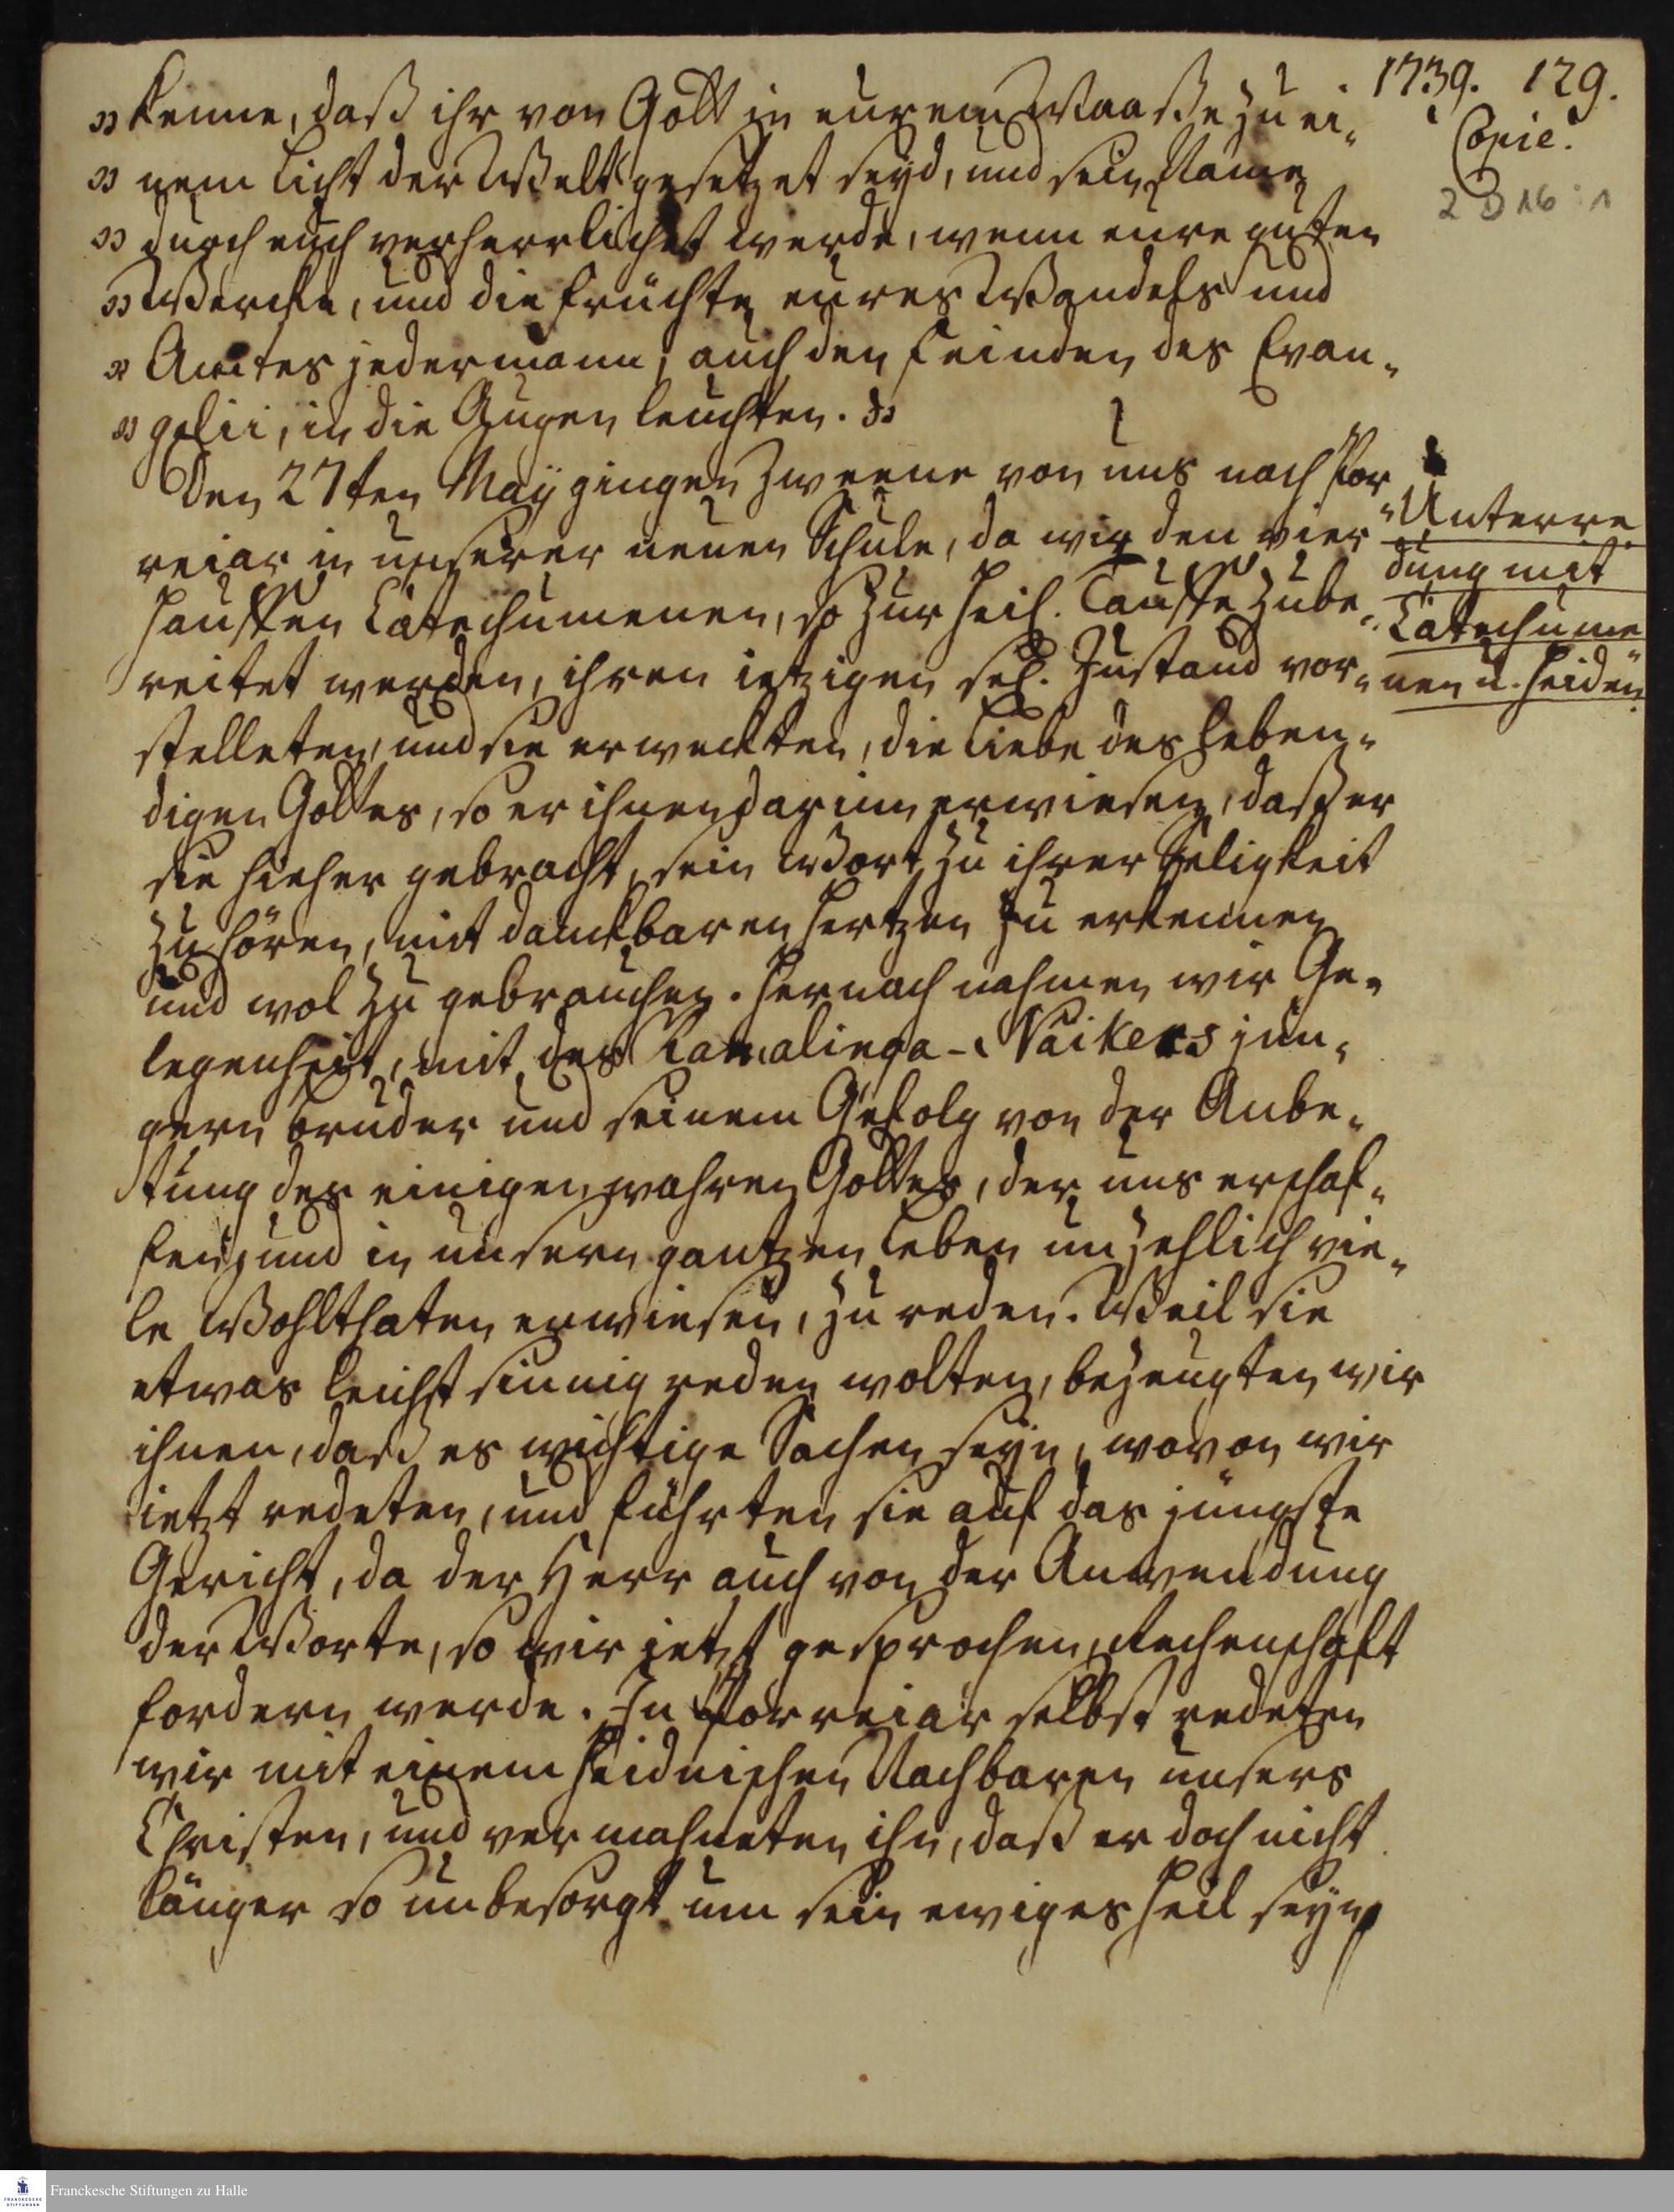 1739. 129.
Copie.
2 D 16 : 1
„kenne, daß ihr von Gott in eurem Maaße zu ei-
„nem Licht der Welt gesetzet seyd, und sein Name
„durch euch verherrlichet werde, wenn eure guten
„Wercke, und die Früchte eures Wandels und
„Amtes jedermann, auch den Feinden des Evan-
„gelii, in die Augen leuchten.„
Den 27ten Maÿ gingen zweene von uns nach Por-
reiar in unserer neuen Schule, da wir den vier
Hauffen Catechumenen, so zur heil. Tauffe zube-
reitet werden, ihren ietzigen sel. Zustand vor-
stelleten, und sie erweckten, die Liebe des leben-
digen Gottes, so er ihnen darinn erwiesen, daß er
sie hieher gebracht, sein Wort zu ihrer Seligkeit
zu hören, mit danckbaren Hertzen zu erkennen
und wol zu gebrauchen. Hernach nahmen wir Ge-
legenheit, mit des Ramalinga-Naikers jün-
gern Bruder und seinem Gefolg von der Anbe-
tung des einigen wahren Gottes, der uns erschaf-
fen, und in unsern gantzen Leben unzehlich vie-
le Wohlthaten erwiesen, zu reden. Weil sie
etwas leichtsinnig reden wolten, bezeugten wir
ihnen, daß es wichtige Sachen seyn, wovon wir
ietzt redeten, und führten sie auf das jüngste
Gericht, da der Herr auch von der Anwendung
der Worte, so wir jetzt gesprochen, Rechenschaft
fordern werde. In Porreiar selbst redeten
wir mit einem heidnischen Nachbaren unsers
Christen, und vermahneten ihn, daß er doch nicht
länger so unbesorgt um sein ewiges Heil seyn
Unterre-
dung mit
Catechume-
nen u. Heiden.
Franckesche Stiftungen zu Halle